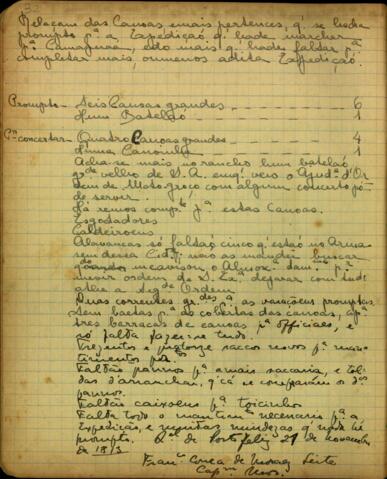 32
Relaçam das Canoas emais pertences, q' se hachão
prompto p.ª a Expedição q' hade marchar
p.ª Camapuam, edo mais q' hade faltar p.ª
completar mais, oumenos adita Expediçaõ.
Promptos - Seis Canoas grandes - 6
Hum Batelaõ - 1
P.ª concertar - Quatro Canoas grandes - 4
Huma Canoinha - 1
Acha-se mais no rancho hum batelaõ
gr.de velho de S. A. em q' veio o Ajud.e d'Or
dem de Mato-groço com algum concerto pó
de servir.
Há remos comp.te p.ª estas Canoas.
Esgotadores
Caldeiroens
Alavancas só faltaõ cinco q' estaõ no Arma
sem dessa Cid.e
de S. Ex.ª
Duas correntes gr.des p.ª as varaçõens promptas.
Sem baetas p.ª as cobertas das canoas,
tres barracas de canoas p.ª officiaes, e
só falta fazerse tudo.
Trezentos e quatorze saccos novos p.ª man
timentos
Faltaõ pannos p.ª mais sacaria, e tol
das d'arranchar, q' cá se compraram os d.os
pannos.
Faltaõ caixoens p.ª toicinho
Falta todo o mantim.to necesario p.ª a
Expediçaõ, e muitas miudezas q' nada há
prompto. Porto feliz 21 de novembro
de 18
Fran.co Correa de Moraes Leite
Cap.m Mor.